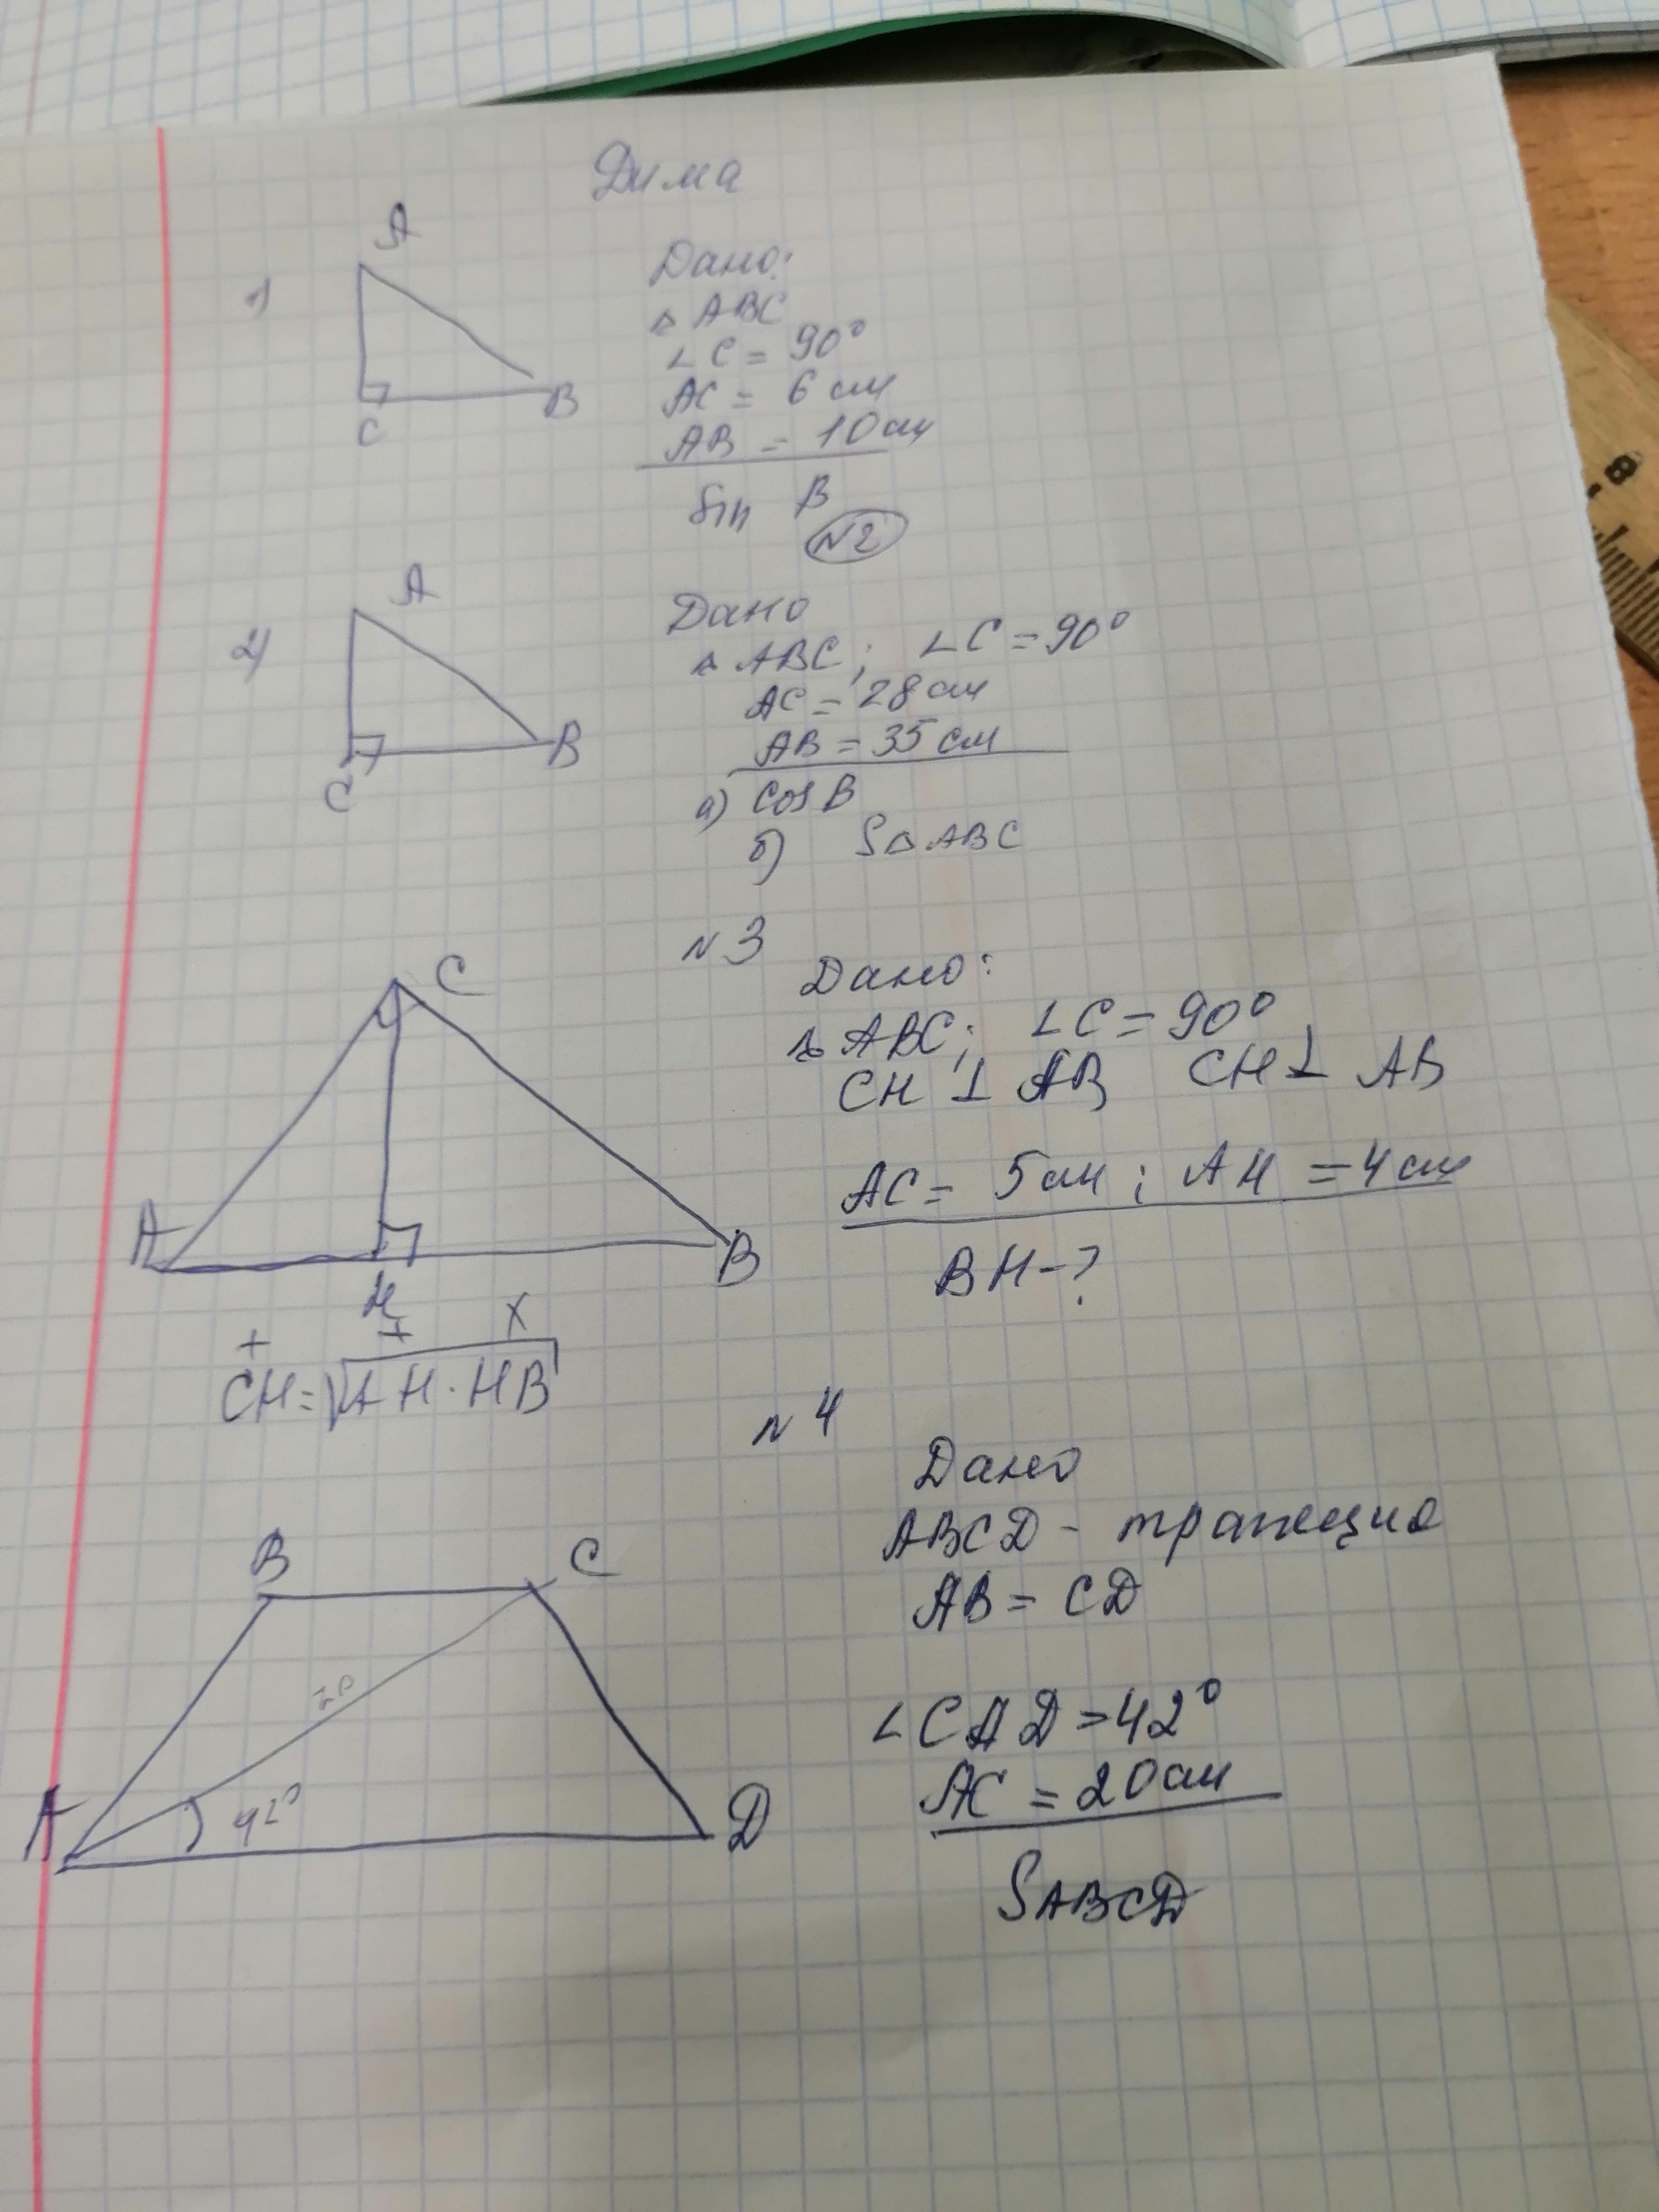 Дима
1)
A
C
B
Дано:
△ ABC
∠ C = 90°
AC = 6 см
AB = 10 см
Sin B
№2
2)
A
C
B
Дано
△ ABC; ∠C = 90°
AC = 28 см
AB = 35 см
а) cos B
б) S△ABC
№3
C
A
H
B
Дано:
△ ABC; ∠C = 90°
CH ⊥ AB CH ⊥ AB
AC = 5 см; AH = 4 см
BH - ?
+ + x
CH = √AH · HB
№4
B
C
20
A
42°
D
Дано
ABCD - трапеция
AB = CD
∠CAD = 42°
AC = 20 см
SABCD
8